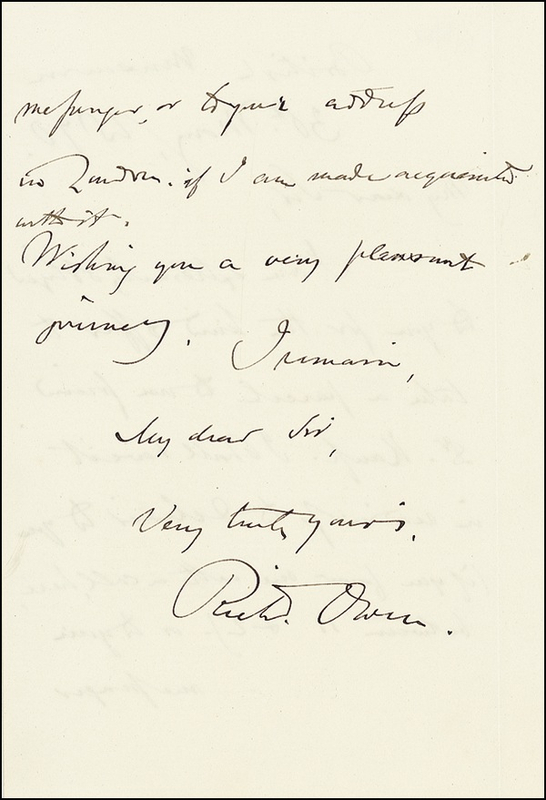 messenger, or to your address
in London, if I am made acquainted
with it.
Wishing you a very pleasant
journey.
I remain,
My dear Sir,
Very truly yours,
Richd. Owen.